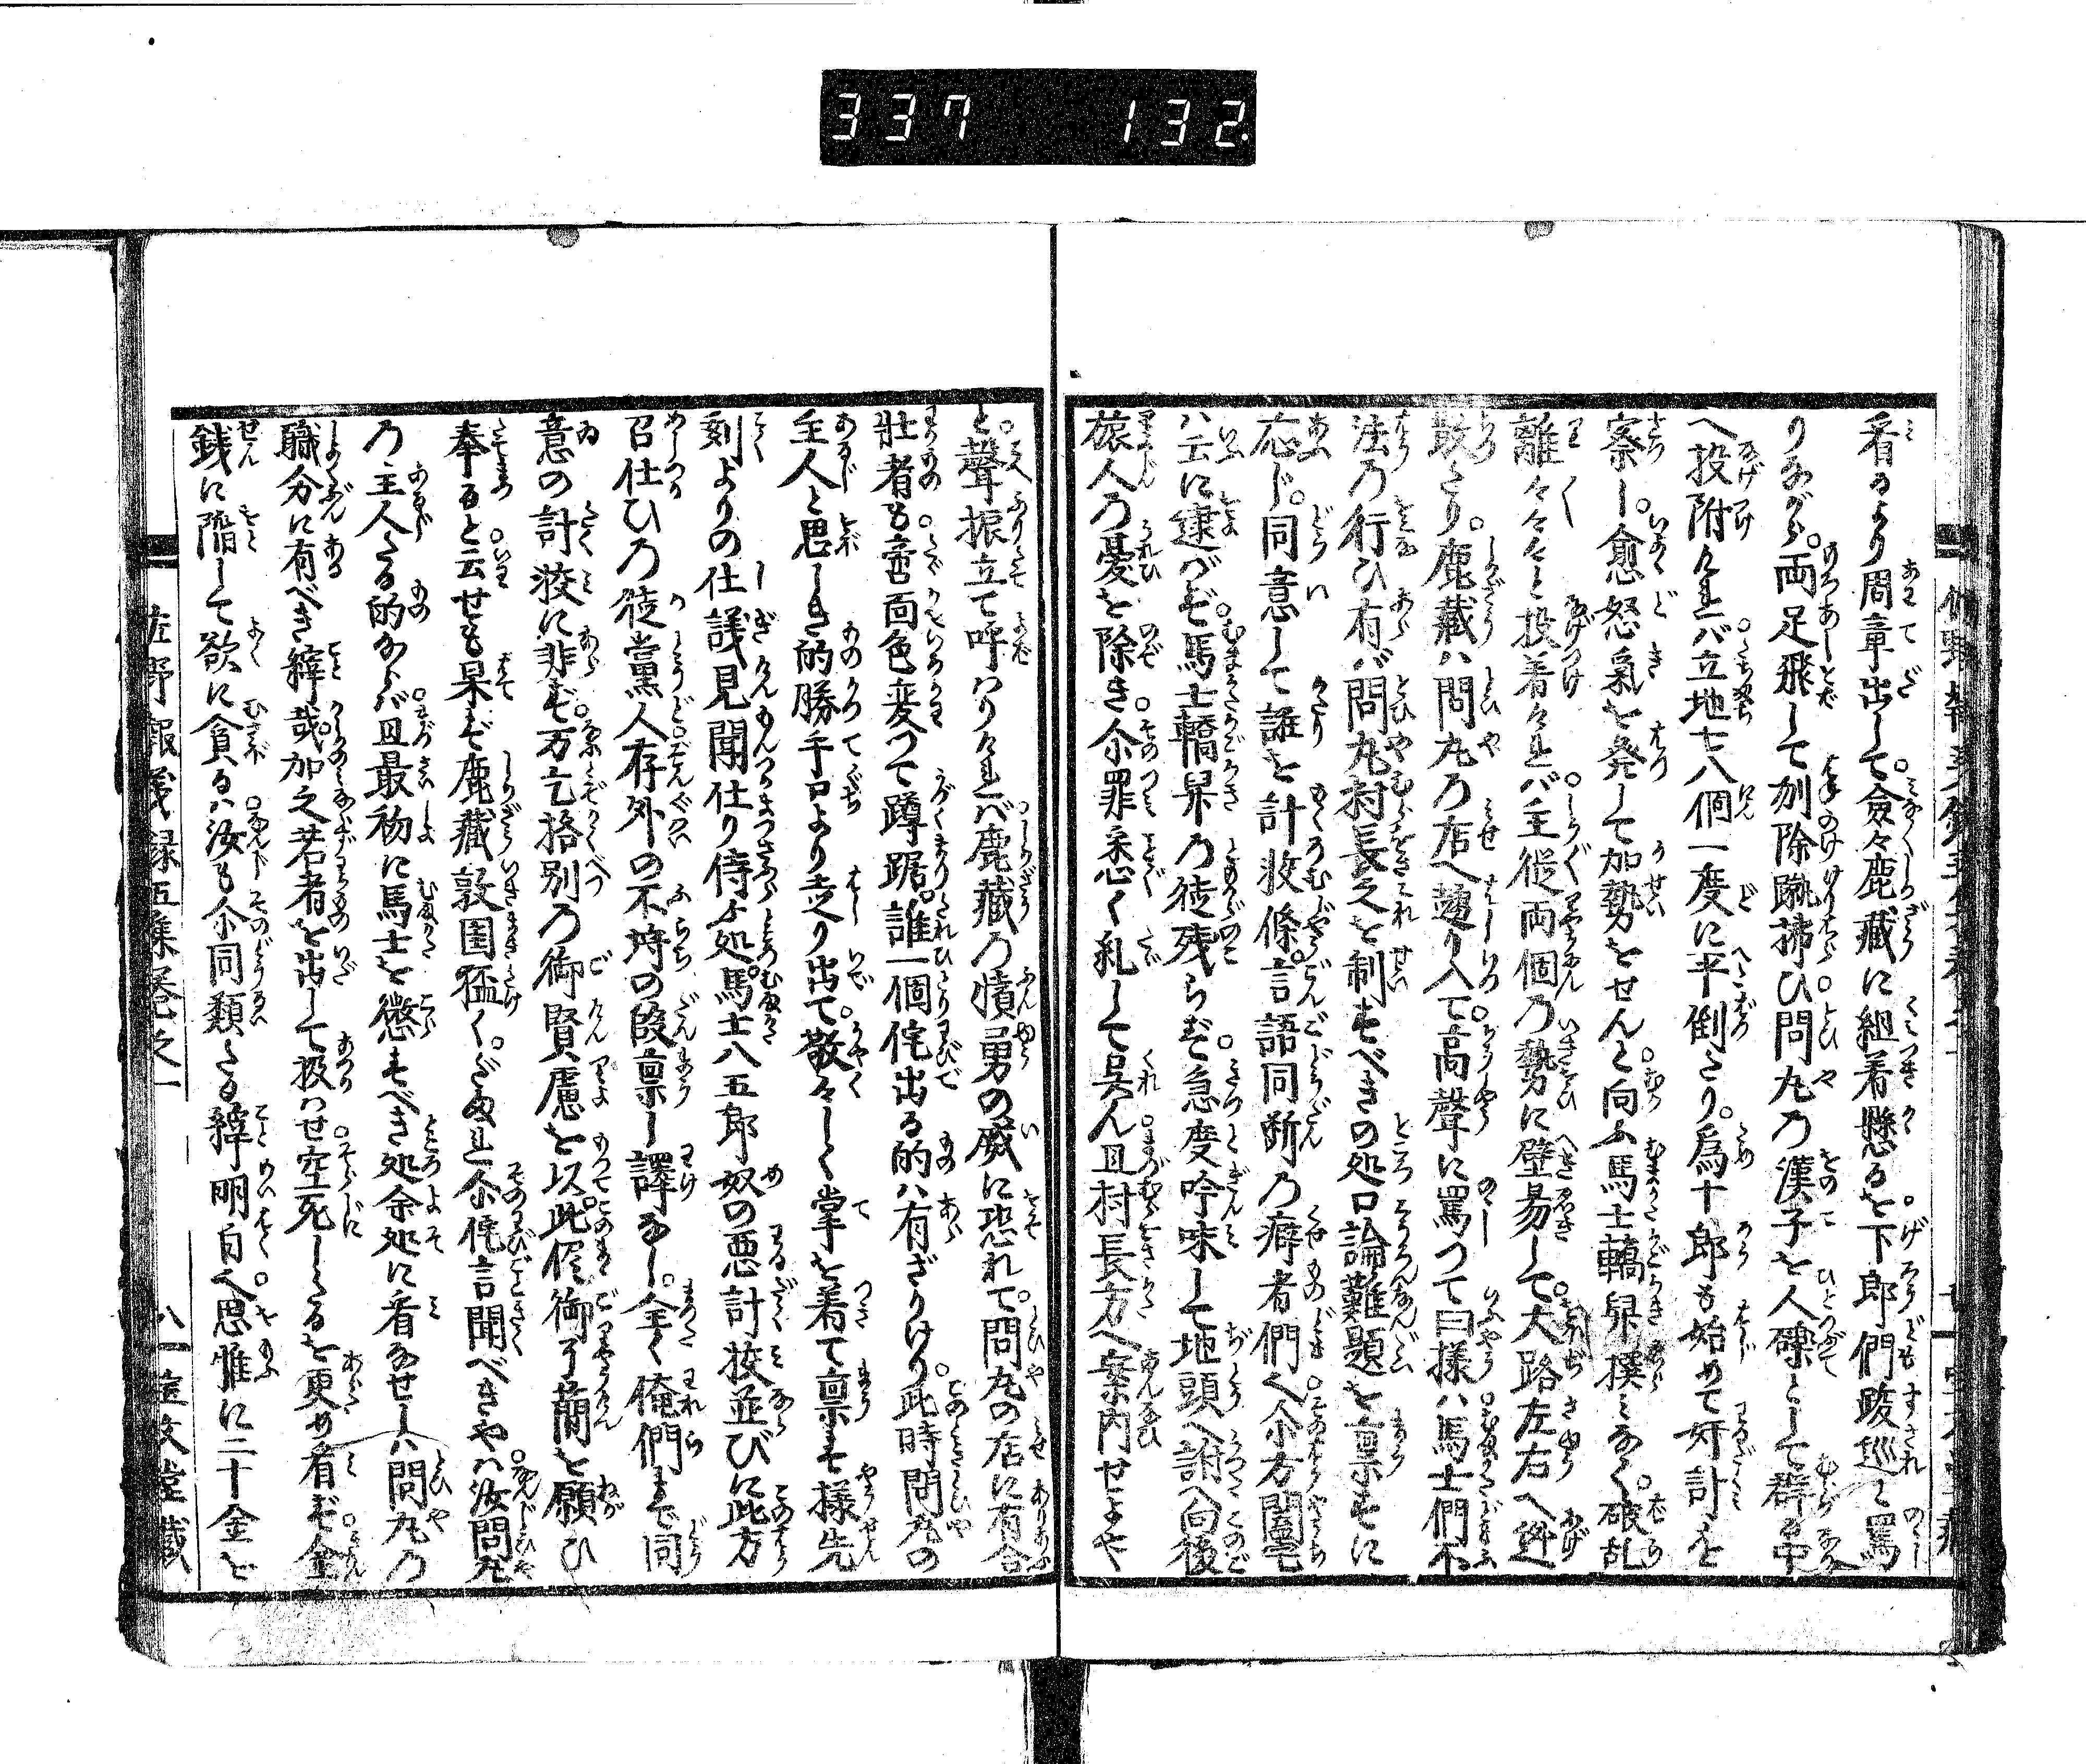 337 132
看るより周章出して僉々鹿藏に組着懸るを下郎們踆巡と罵
りながら両足飛して刎除蹴拂ひ問丸の漢子を人礫として群る中
へ投附くれバ立地七八個一度に平倒たり為十郎も始めて奸計を
察し愈怒氣を発して加勢をせんと向ふ馬士轎舁撲ミなく破乱
離々々々と投着くれバ主従両個の勢に壁易して大路左右へ迯
散たり鹿藏ハ問丸の店へ𨗉り入て高聲に罵つて曰様ハ馬士們不
法の行ひ有バ問丸村長之を制すべきの処口論難題を禀すに
応じ同意して誰と計較條言語同断の癖者們へ尒方闔宅
ハ云に逮バず馬士轎舁の徒残らず急度吟味して地頭へ訴へ向後
旅人の憂を除き尒罪悉く糺して呉ん且村長方へ案内せよや
と聲振立て呼ハりくれバ鹿藏の憤勇の威に恐れて問丸の店に有合
壮者も啻面色変つて蹲踞誰一個侘出る的ハ有ざりけり此時問丸の
主人と思しき的勝手口より走り出て敬々しく掌を着て禀す様先
刻よりの仕議見聞仕り侍ふ処馬士八五郎奴の悪計按並びに此方
召仕ひの徒黨人存外の不埒の段禀し譯なし全く俺們まで同
意の計較に非ず万乞格別の御賢慮を以此侭御了蕳を願ひ
奉ると云せも果ず鹿藏敦圉猛くだまれ尒侘言聞べきやハ汝問丸
の主人たる的ならバ且最初に馬士を懲すべき処余処に看なせしハ問丸の
職分に有べき縡哉加之若者を出して扱ハせ空死したるを更め看ず金
銭に賠して欲に貪るハ汝も尒同類たる縡明白へ思惟に二十金を
佐野報義録五集巻之一 八 一 藏